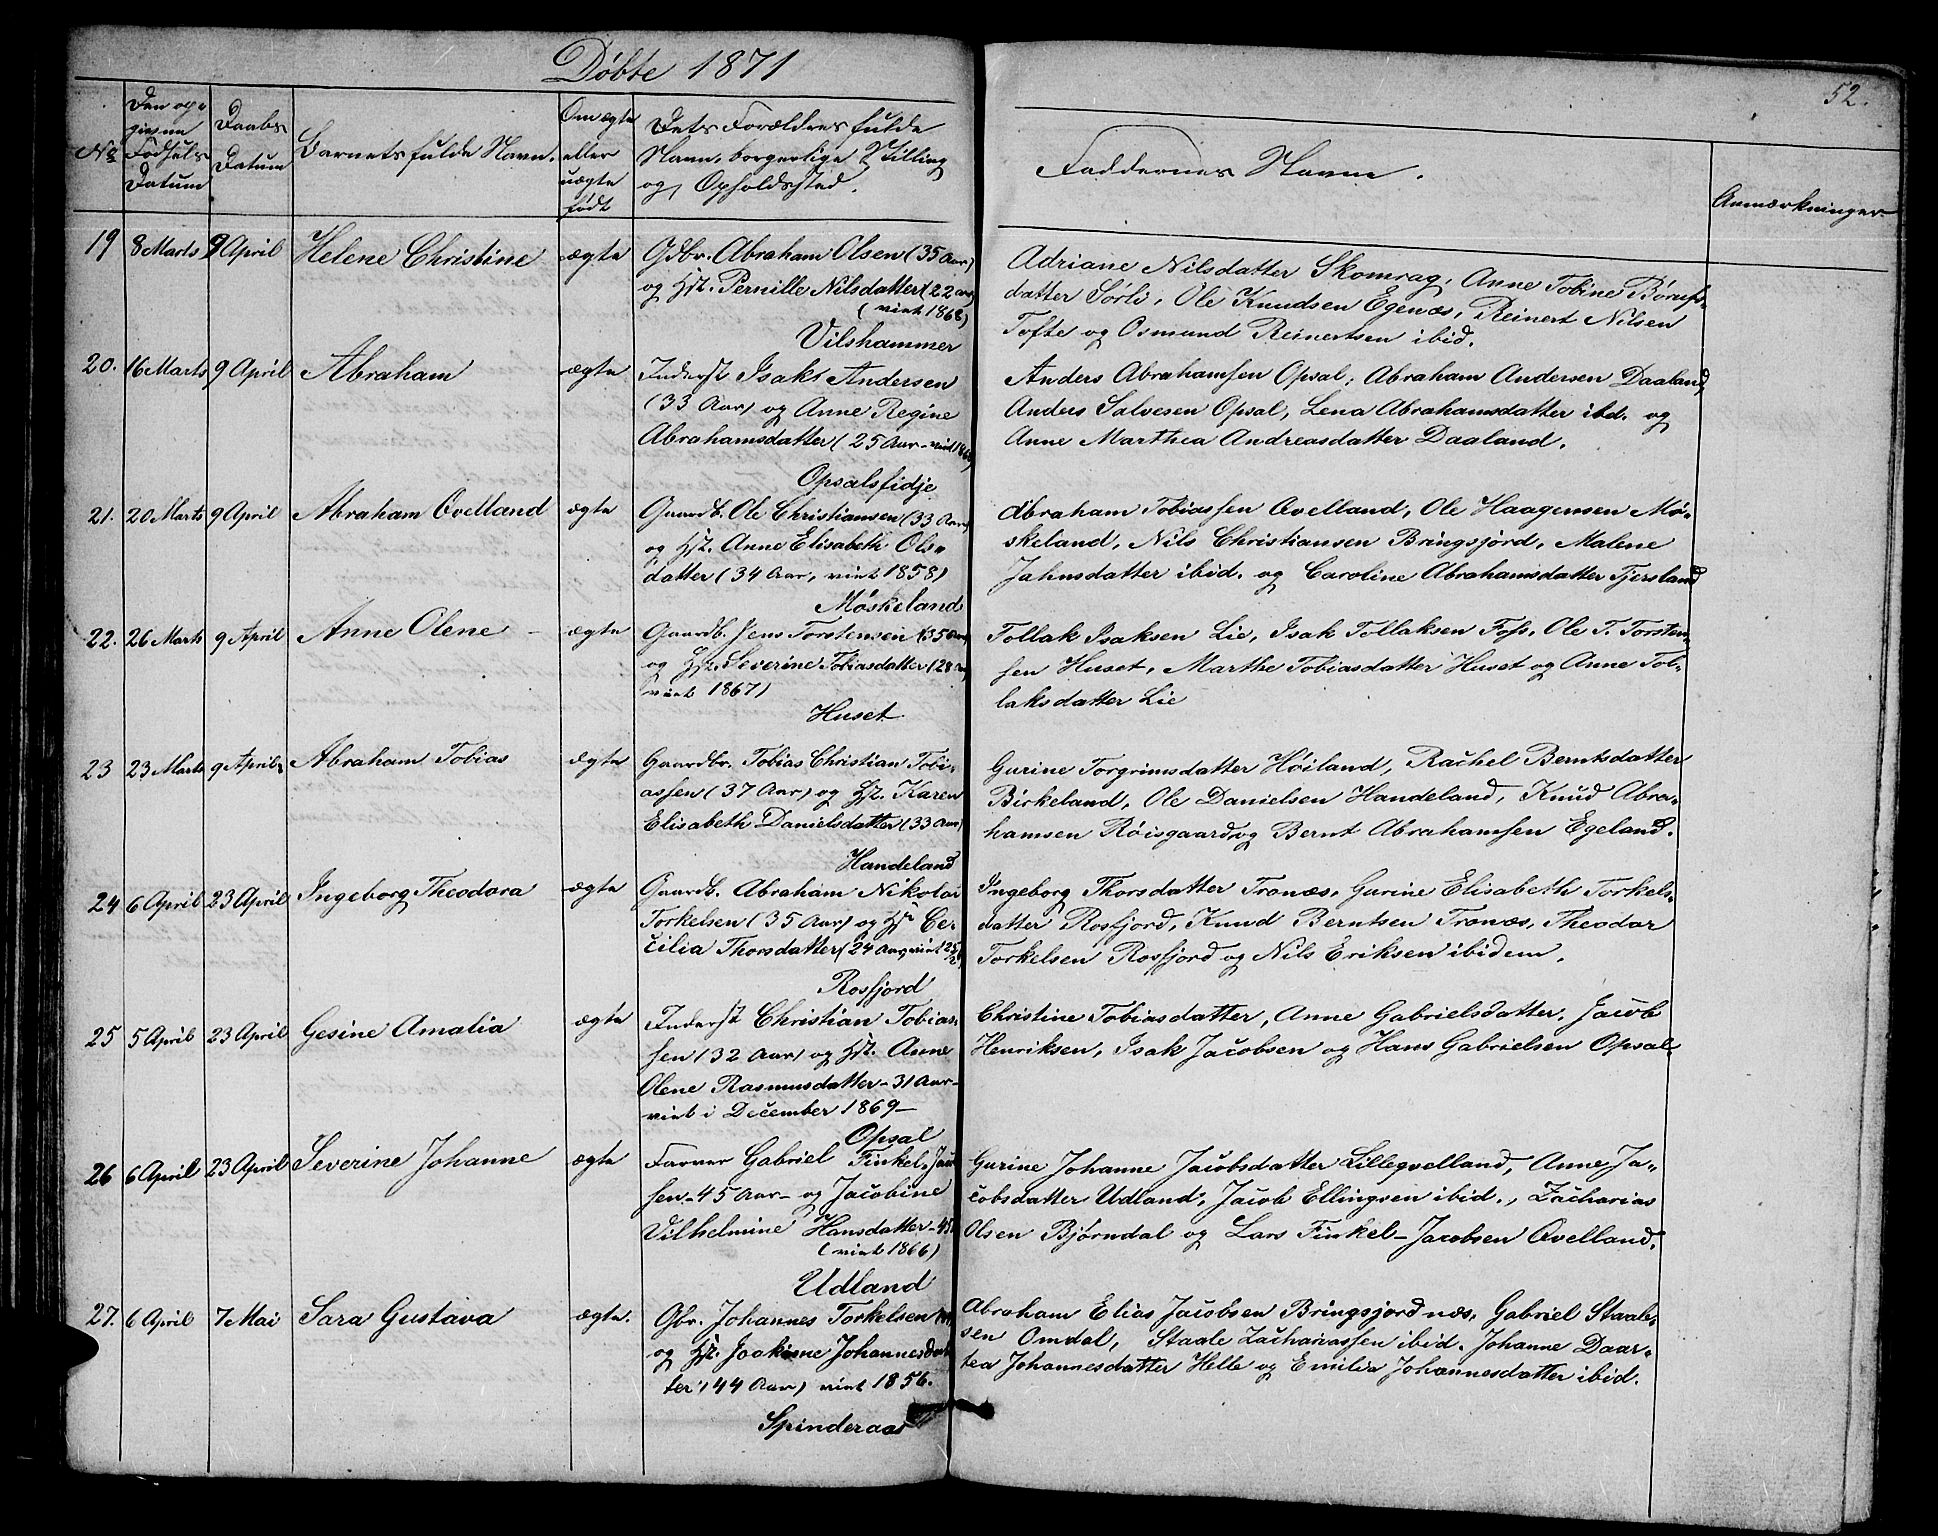 Døbte 1871
52.
No
Den op-
givne
Fødsels
Datum
Daabs
Datum
Barnets fulde Navn.
Om ægte
eller
uægte
født
Dets Forældres fulde
Navn, borgerlige Stilling
og Opholdssted.
Faddernes Navne.
Anmærkninger
19 8 Marts 9 April Helene Christine ægte Gdbr. Abraham Olsen (35 Aar)
og Hst. Pernille Nilsdatter (22 aar)
(viet 1868)
Vilshammer
Adriane Nilsdatter Skomrag, Anne Tobine Børufs-
datter Sørli, Ole Knudsen Egenæs, Reinert Nilsen
Tofte og Osmund Reinertsen ibid.
20. 16 Marts 9 April Abraham ægte Inderst Isak Andersen
(33 Aar) og Anne Regine
Abrahamsdatter (25 Aar - viet
Opsalsfidje
Anders Abrahamsen Opsal, Abraham Andersen Daaland,
Anders Salvesen Opsal, Lena Abrahamsdatter ibd. og
Anne Marthea Andreasdatter Daaland.
21. 20 Marts 9 April Abraham Ovelland ægte Gaardb. Ole Christiansen (33 Aar)
og Hst. Anne Elisabeth Ols-
datter (34 Aar, viet 1858)
Møskeland
Abraham Tobiassen Øvelland, Ole Haagensen Mø-
skeland, Nils Christiansen Bringsjord, Malene
Jahnsdatter ibid. og Caroline Abrahamsdatter Tjersland
22. 26 Marts 9 April Anne Olene ægte Gaardb. Jens Torstensen (35 Aar)
og Hst. Severine Tobiasdatter (28 Aar)
viet 1867)
Huset
Tollak Isaksen Lie, Isak Tollaksen Foss, Ole T. Torsten-
sen Huset, Marthe Tobiasdatter Huset og Anne Tol-
laksdatter Lie
23 23 Marts 9 April Abraham Tobias ægte Gaardbr. Tobias Christian Tobi-
assen (37 Aar) og Hst. Karen
Elisabeth Danielsdatter (33 Aar)
Handeland
Gurine Torgrimsdatter Høiland, Rachel Berntsdatter
Birkeland, Ole Danielsen Handeland, Knud Abra-
hamsen Røisgaard og Bernt Abrahamsen Egeland.
24 6 April 23 April Ingeborg Theodora ægte Gaardb. Abraham Nikolai
Torkelsen (35 Aar) og Hst Ce-
cilia Thorsdatter (24 Aar, viet
Rosfjord
Ingeborg Thorsdatter Tronæs, Gurine Elisabeth Torkels-
datter Rosfjord, Knud Berntsen Tronæs, Theodor
Torkelsen Rosfjord og Nils Eriksen ibidem.
25 5 April 23 April Gesine Amalia ægte Inderst Christian Tobias-
sen (32 Aar) og Hst. Anne
Olene Rasmusdatter - 31 Aar -
viet i December 1869 -
Opsal
Christine Tobiasdatter, Anne Gabrielsdatter, Jacob
Henriksen, Isak Jacobsen og Hans Gabrielsen Opsal.
26 6 April 23 April Severine Johanne ægte Farver Gabriel Finkel-Jacob
sen - 45 Aar - og Jacobine
Vilhelmine Hansdatter - 45
(viet 1866)
Udland
Gurine Johanne Jacobsdatter Lilleøvelland, Anne Ja-
cobsdatter Udland, Jacob Ellingsen ibid., Zacharias
Olsen Bjørndal og Lars Finkel-Jacobsen Øvelland.
27. 6 April 7 Mai Sara Gustava ægte. Gbr. Johannes Torkelsen
og Hst. Joakime Johannesdat
ter (44 Aar) viet 1856.
Spinderaas
Abraham Elias Jacobsen Bringsjordnæs, Gabriel Staale-
sen Omdal, Staale Zachariassen ibid. Johanne Daar-
tea Johannesdatter Helle og Emilie Johannesdatter ibid.